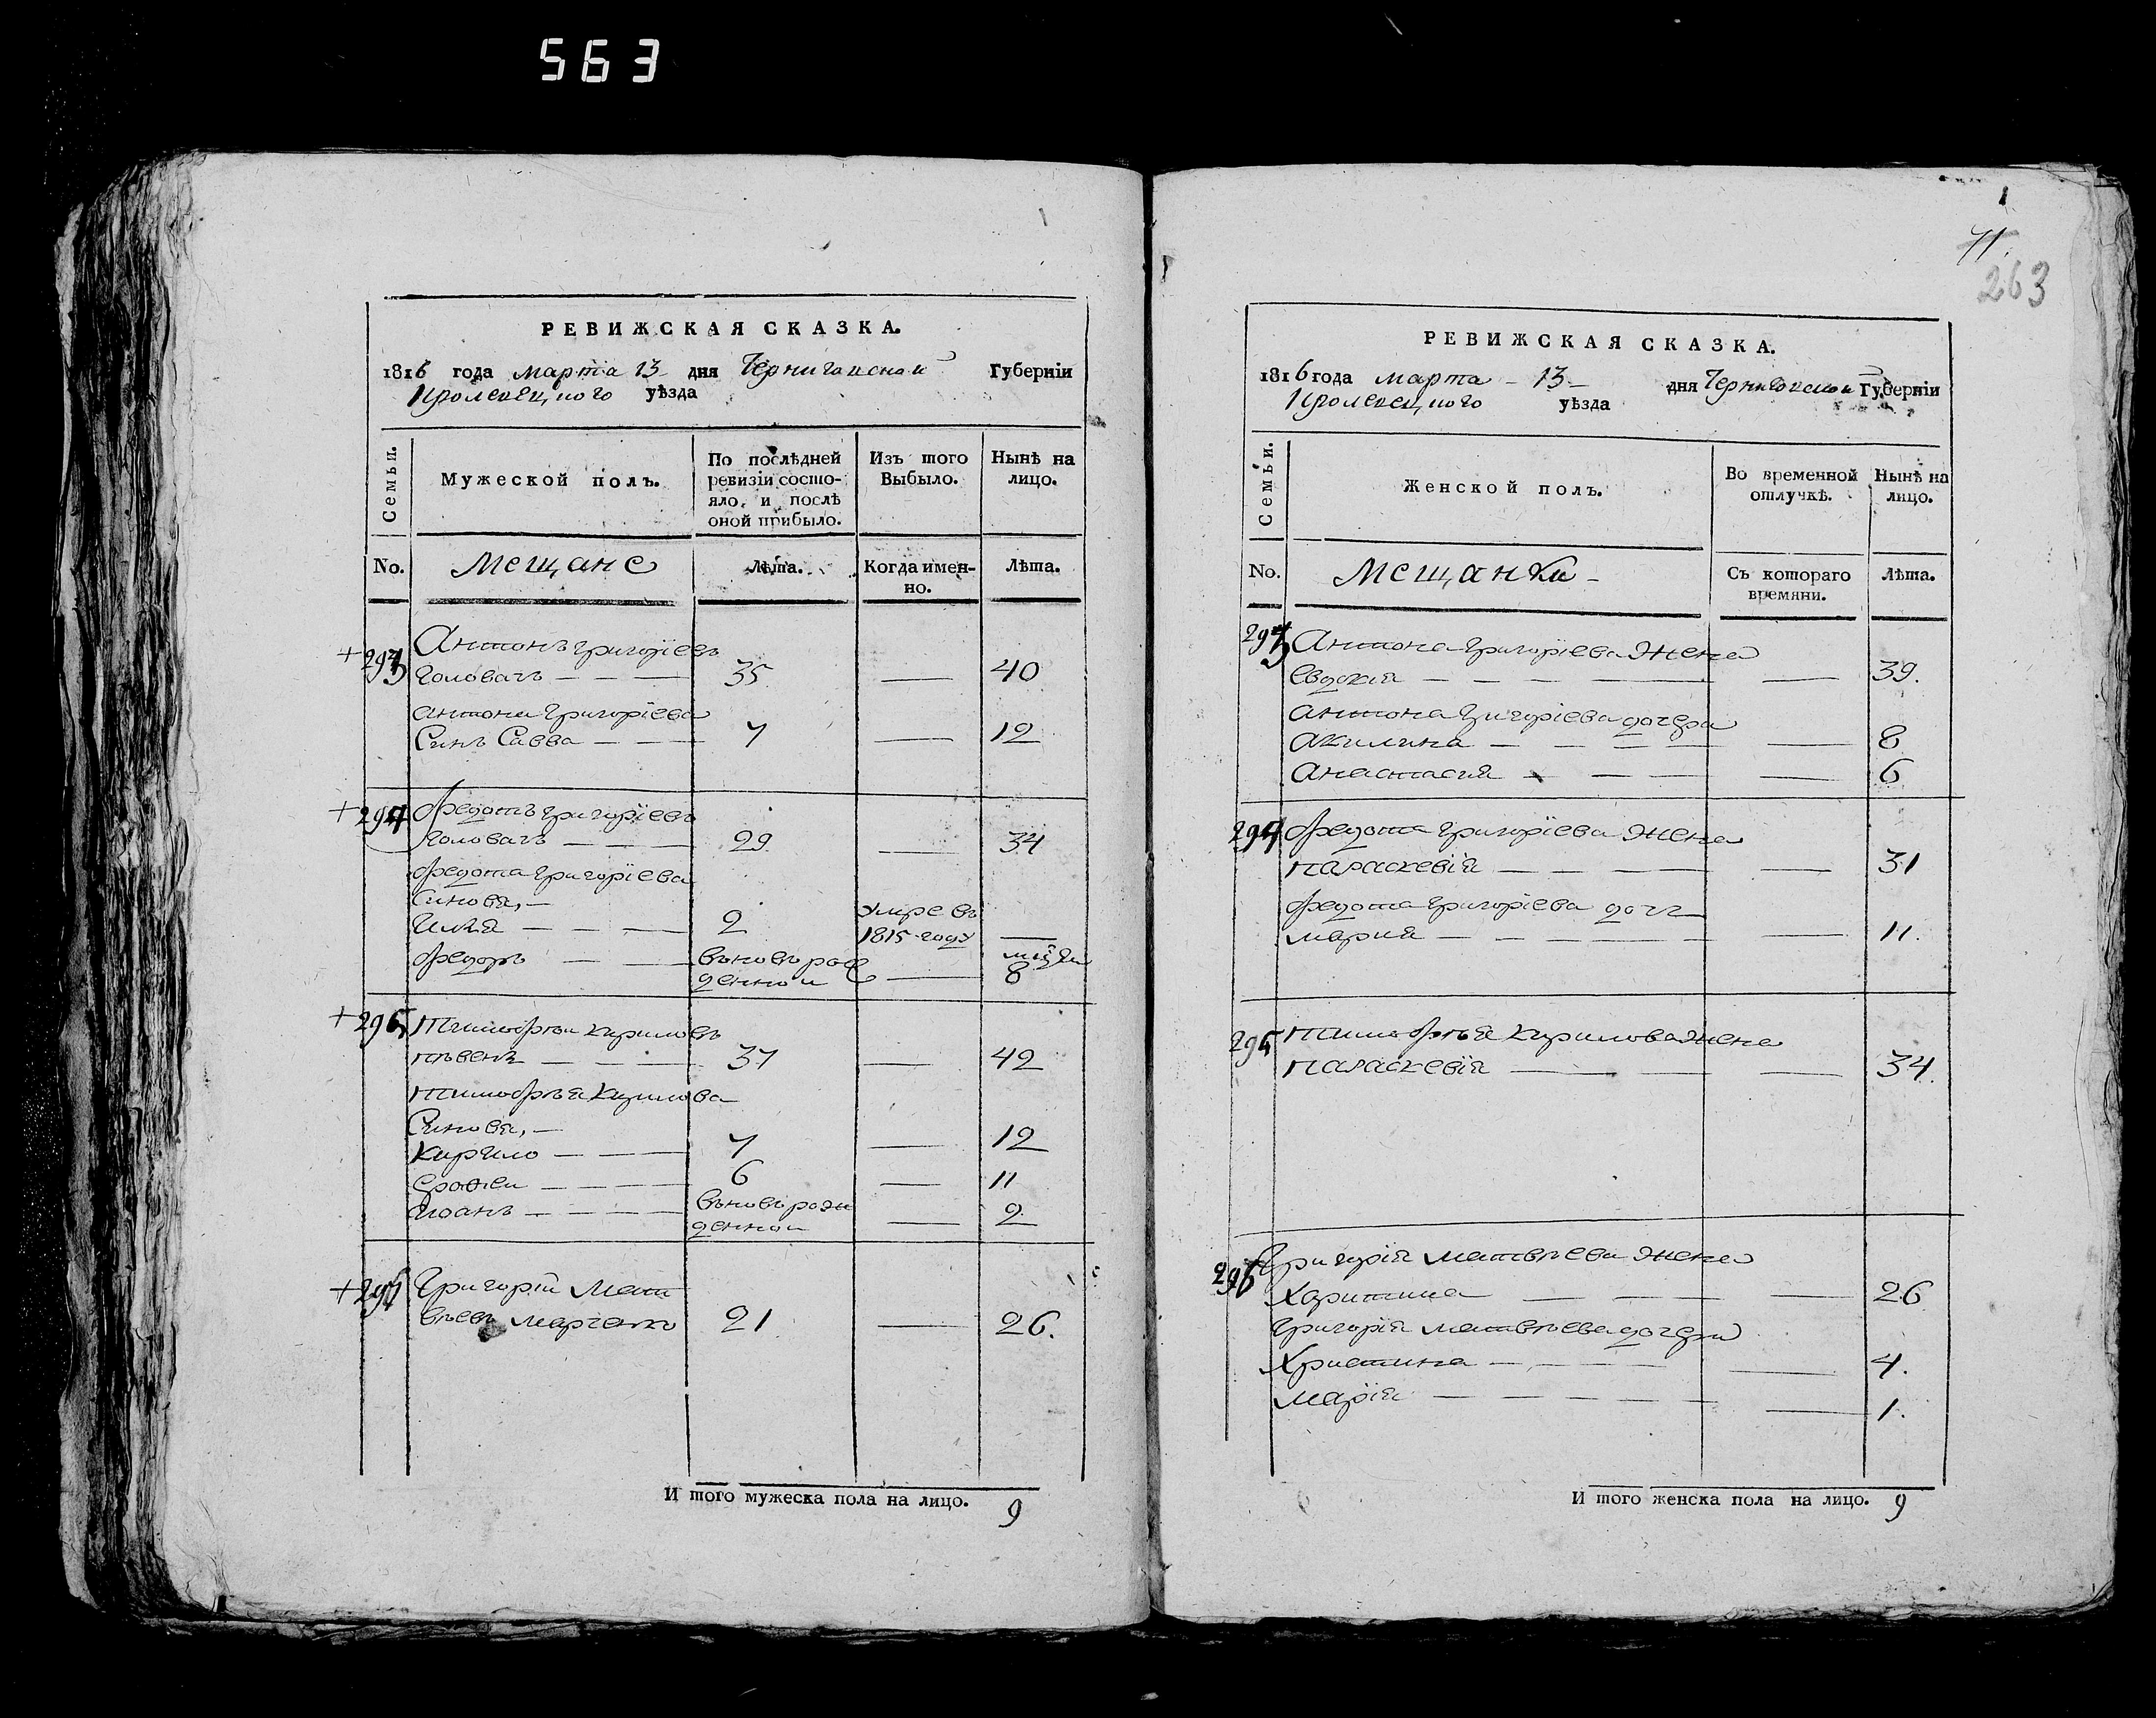 563
РЕВИЖСКАЯ СКАЗКА.
1816 года марта 13 дня Черниговской Губерніи
Кролевецкого уѣзда
Семьи.
Мужеской полъ.
По послѣдней ревизіи состо-
яло, и послѣ
оной прибыло.
Изъ того
Выбыло.
Нынѣ на
лицо.
No.
мещане
Лѣта.
Когда имен-
но.
Лѣта.
+293 Антонъ григоріевъ
головачъ — — — 35 — 40
антона григоріева
Синъ Савва — — 7 — 12
+294 Федотъ григоріевъ
головачъ — — — 29 — 34
Федота григоріева
Синовя, —
Илія — — — 2 умре въ
1815 году —
Федоръ — — вновь рож
денной — 8
+295 Тимофѣи кириловъ
пѣвень — — — 37 — 42
Тимофѣя Кирилова
Синовя, —
Кирило — — — 7 — 12
6 — 11
Иоанъ — — — — вновь рож
денной — 2
+296 Григорій Мат
вѣевъ Марченко 21 — 26.
И того мужеска пола на лицо. 9
71.
263
РЕВИЖСКАЯ СКАЗКА.
1816 года марта — 13 — дня Черниговской Губерніи
Кролевецкого уѣзда
Семьи.
Женской полъ.
Во временной
отлучкѣ.
Нынѣ на
лицо.
No.
Мещанки —
Съ котораго
времяни.
Лѣта.
293 Антона григоріева жена
Евдокія — — — — — 39.
антона григоріева дочери
акилина — — — — — 8
анастасия — — — — 6
294 Федота григоріева жена
параскевія — — — — — 31
Федота григоріева дочь
мария — — — — — — 11.
295 Тимофѣя кирилова жена
параскевія — — — — 34.
296 Григорія матвѣева жена
Харитина — — — — 26
григорія матвѣева дочери
Христина — — — — 4.
марія — — — — — 1.
И того женска пола на лицо. 9